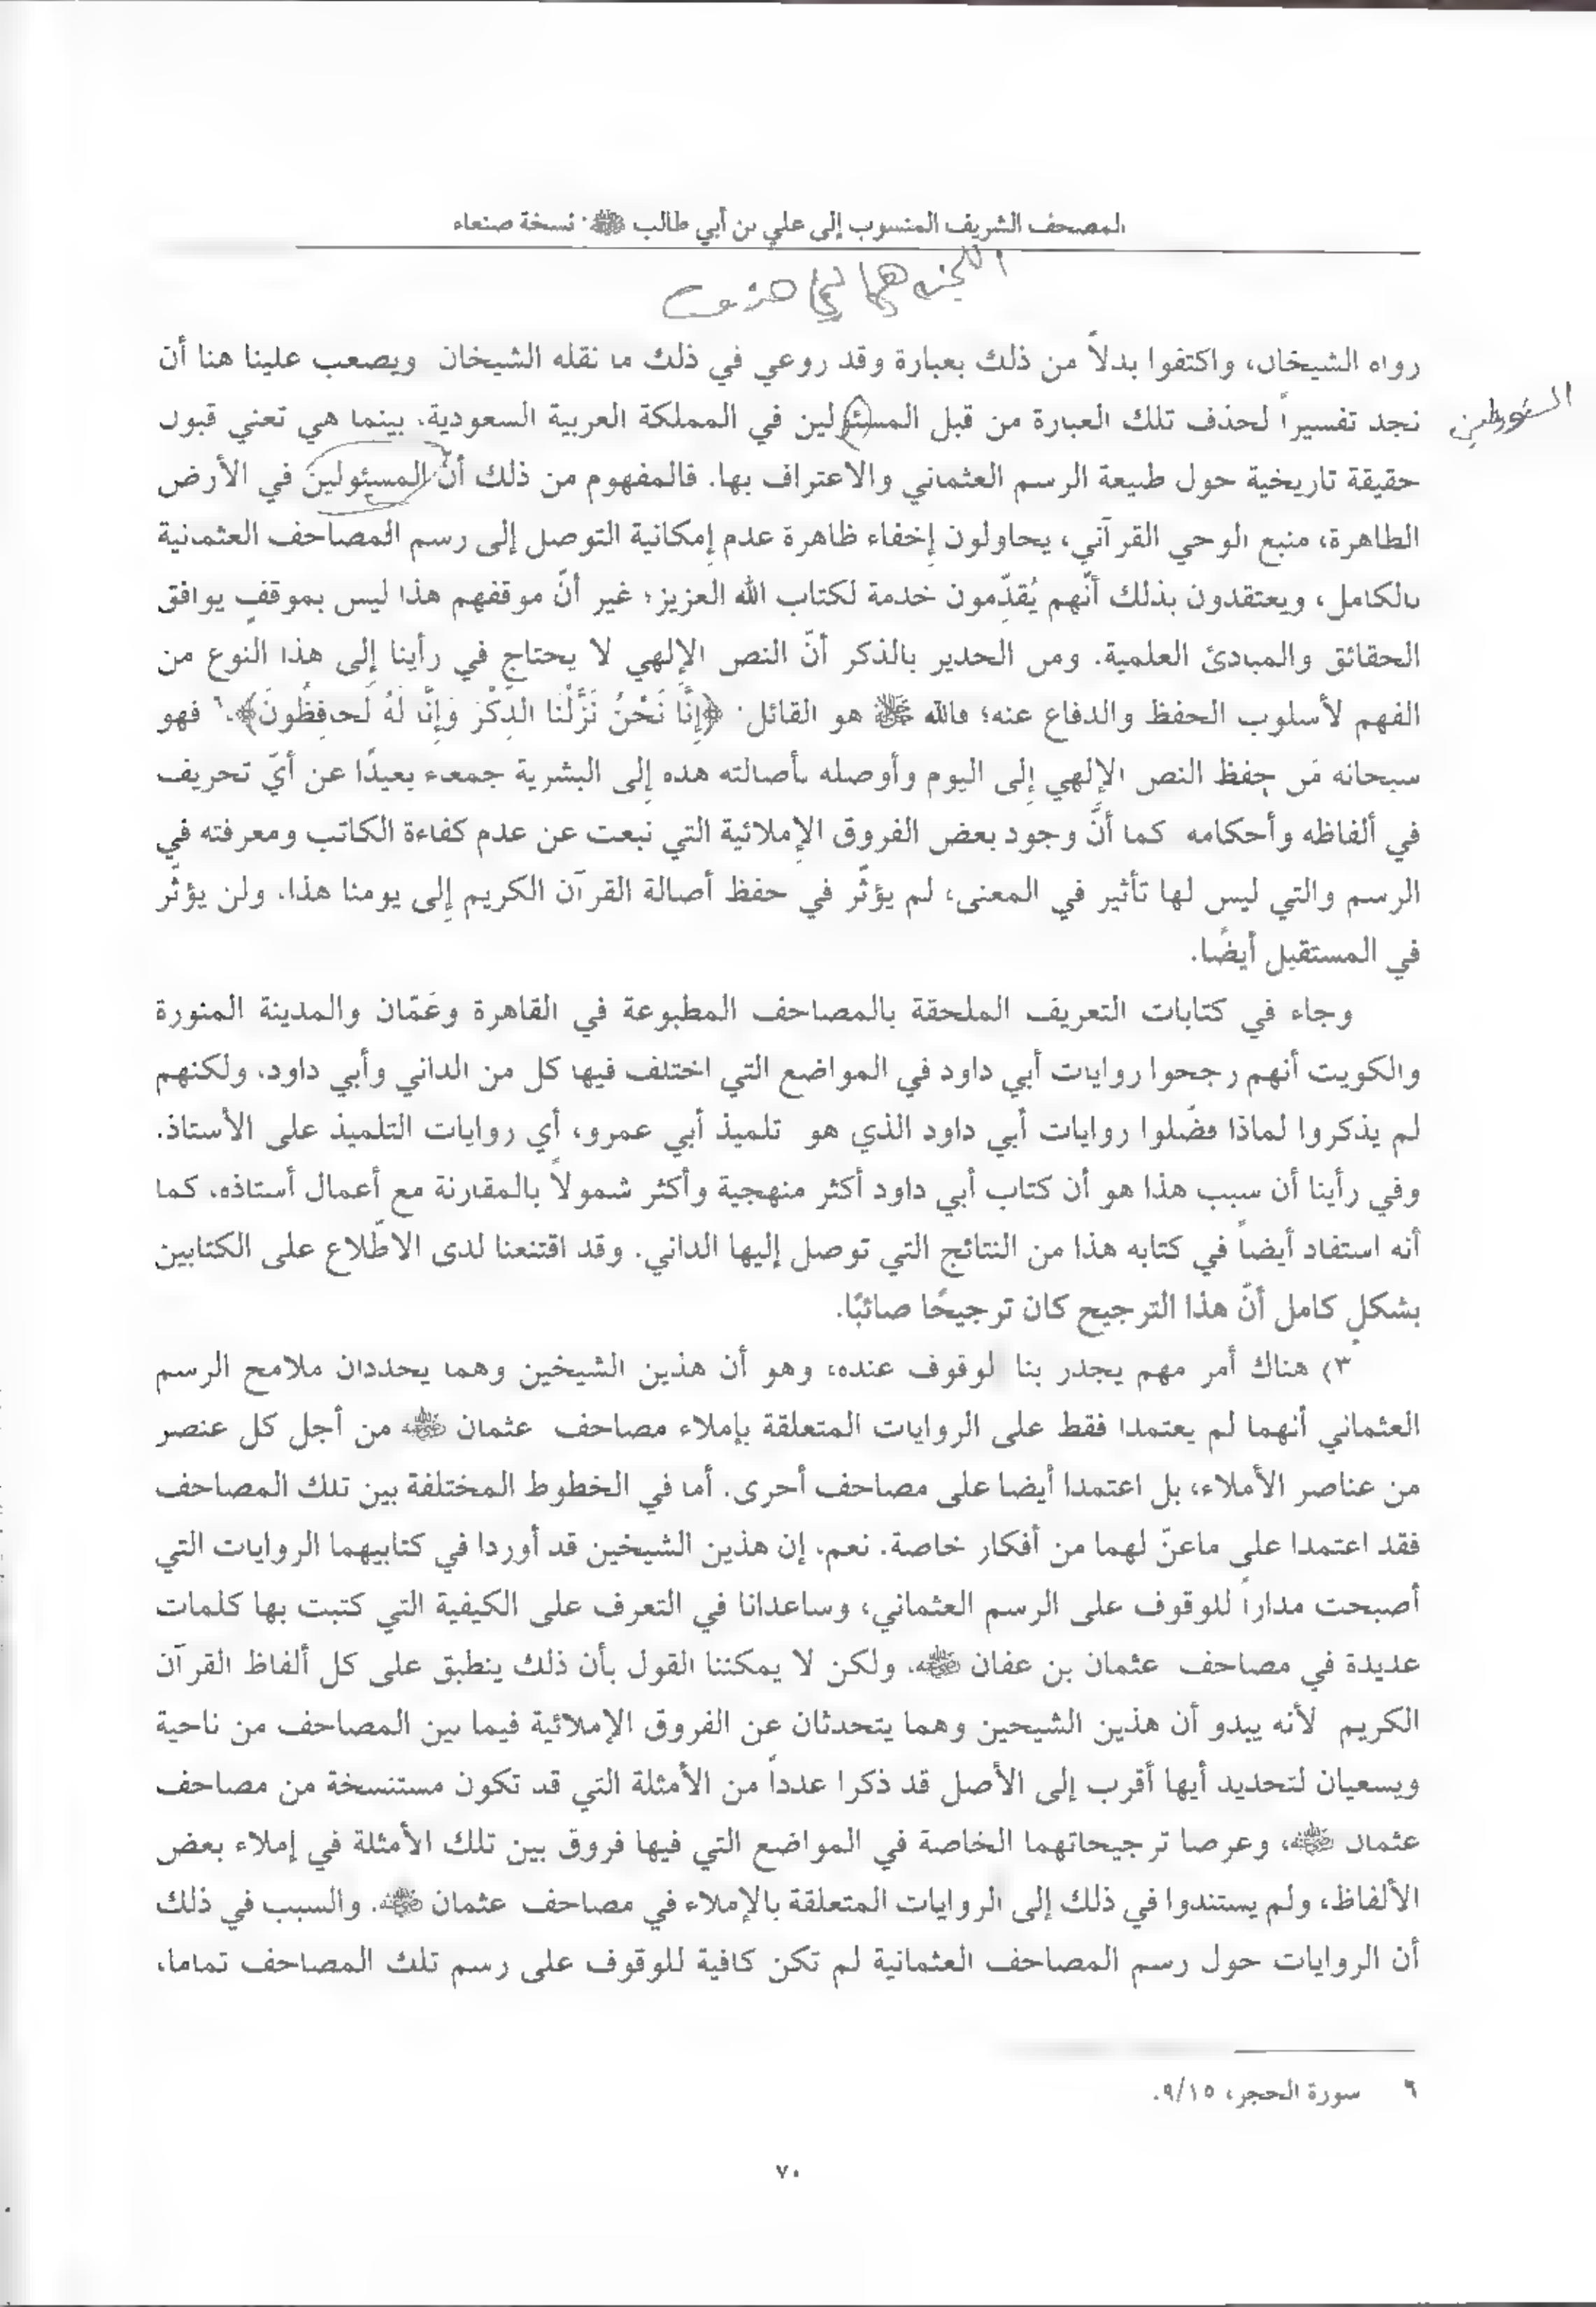 المصحف الشريف المنسوب إلى علي بن أبي طالب ﷺ: نسخة صنعاء
اللجنة
رواه الشيخان، واكتفوا بدلاً من ذلك بعبارة وقد روعي في ذلك ما نقله الشيخان ويصعب علينا هنا أن
نجد تفسيراً لحذف تلك العبارة من قبل المسئولين في المملكة العربية السعودية، بينما هي تعني قبول
حقيقة تاريخية حول طبيعة الرسم العثماني والاعتراف بها. فالمفهوم من ذلك أنّ المسئولين في الأرض
الطاهرة، منبع الوحي القرآني، يحاولون إخفاء ظاهرة عدم إمكانية التوصل إلى رسم المصاحف العثمنية
بالكامل، ويعتقدون بذلك أنّهم يُقدِّمون خدمة لكتاب الله العزيز؛ غير أنّ موقفهم هذا ليس بموقفٍ يوافق
الحقائق والمبادئ العلمية. ومن الجدير بالذكر أنّ النص الإلهي لا يحتاج في رأينا إلى هذا النوع من
الفهم لأسلوب الحفظ والدفاع عنه؛ فالله ﷻ هو القائل: ﴿إِنَّا نَحْنُ نَزَّلْنَا الذِّكْرَ وَإِنَّا لَهُ لَحـفِظُونَ﴾.٦ فهو
سبحانه مَن حفظ النص الإلهي إلى اليوم وأوصله بأصالته هذه إلى البشرية جمعاء بعيدًا عن أيّ تحريف
في ألفاظه وأحكامه كما أنَّ وجود بعض الفروق الإملائية التي نبعت عن عدم كفاءة الكاتب ومعرفته في
الرسم والتي ليس لها تأثير في المعنى، لم يؤثّر في حفظ أصالة القرآن الكريم إلى يومنا هذا، ولن يؤثّر
في المستقبل أيضًا.
وجاء في كتابات التعريف الملحقة بالمصاحف المطبوعة في القاهرة وعَمّان والمدينة المنورة
والكويت أنهم رجحوا روايات أبي داود في المواضع التي اختلف فيها كل من الداني وأبي داود، ولكنهم
لم يذكروا لماذا فضّلوا روايات أبي داود الذي هو تلميذ أبي عمرو، أي روايات التلميذ على الأستاذ.
وفي رأينا أن سبب هذا هو أن كتاب أبي داود أكثر منهجية وأكثر شمولاً بالمقارنة مع أعمال أستاذه، كما
أنه استفاد أيضاً في كتابه هذا من النتائج التي توصل إليها الداني. وقد اقتنعنا لدى الاطّلاع على الكتابين
بشكلٍ كامل أنّ هذا الترجيح كان ترجيحًا صائبًا.
٣) هناك أمر مهم يجدر بنا لوقوف عنده، وهو أن هذين الشيخين وهما يحددان ملامح الرسم
العثماني أنهما لم يعتمدا فقط على الروايات المتعلقة بإملاء مصاحف عثمان ﷺ من أجل كل عنصر
من عناصر الأملاء، بل اعتمدا أيضا على مصاحف أخرى. أما في الخطوط المختلفة بين تلك المصاحف
فقد اعتمدا على ماعنّ لهما من أفكار خاصة. نعم، إن هذين الشيخين قد أوردا في كتابيهما الروايات التي
أصبحت مداراً للوقوف على الرسم العثماني، وساعدانا في التعرف على الكيفية التي كتبت بها كلمات
عديدة في مصاحف عثمان بن عفان ﷺ، ولكن لا يمكننا القول بأن ذلك ينطبق على كل ألفاظ القرآن
الكريم لأنه يبدو أن هذين الشيخين وهما يتحدثان عن الفروق الإملائية فيما بين المصاحف من ناحية
ويسعيان لتحديد أيها أقرب إلى الأصل قد ذكرا عدداً من الأمثلة التي قد تكون مستنسخة من مصاحف
عثمان ﷺ، وعرضا ترجيحاتهما الخاصة في المواضع التي فيها فروق بين تلك الأمثلة في إملاء بعض
الألفاظ، ولم يستندوا في ذلك إلى الروايات المتعلقة بالإملاء في مصاحف عثمان ﷺ. والسبب في ذلك
أن الروايات حول رسم المصاحف العثمانية لم تكن كافية للوقوف على رسم تلك المصاحف تماما،
٦ سورة الحجر، ٩/١٥.
٧٠